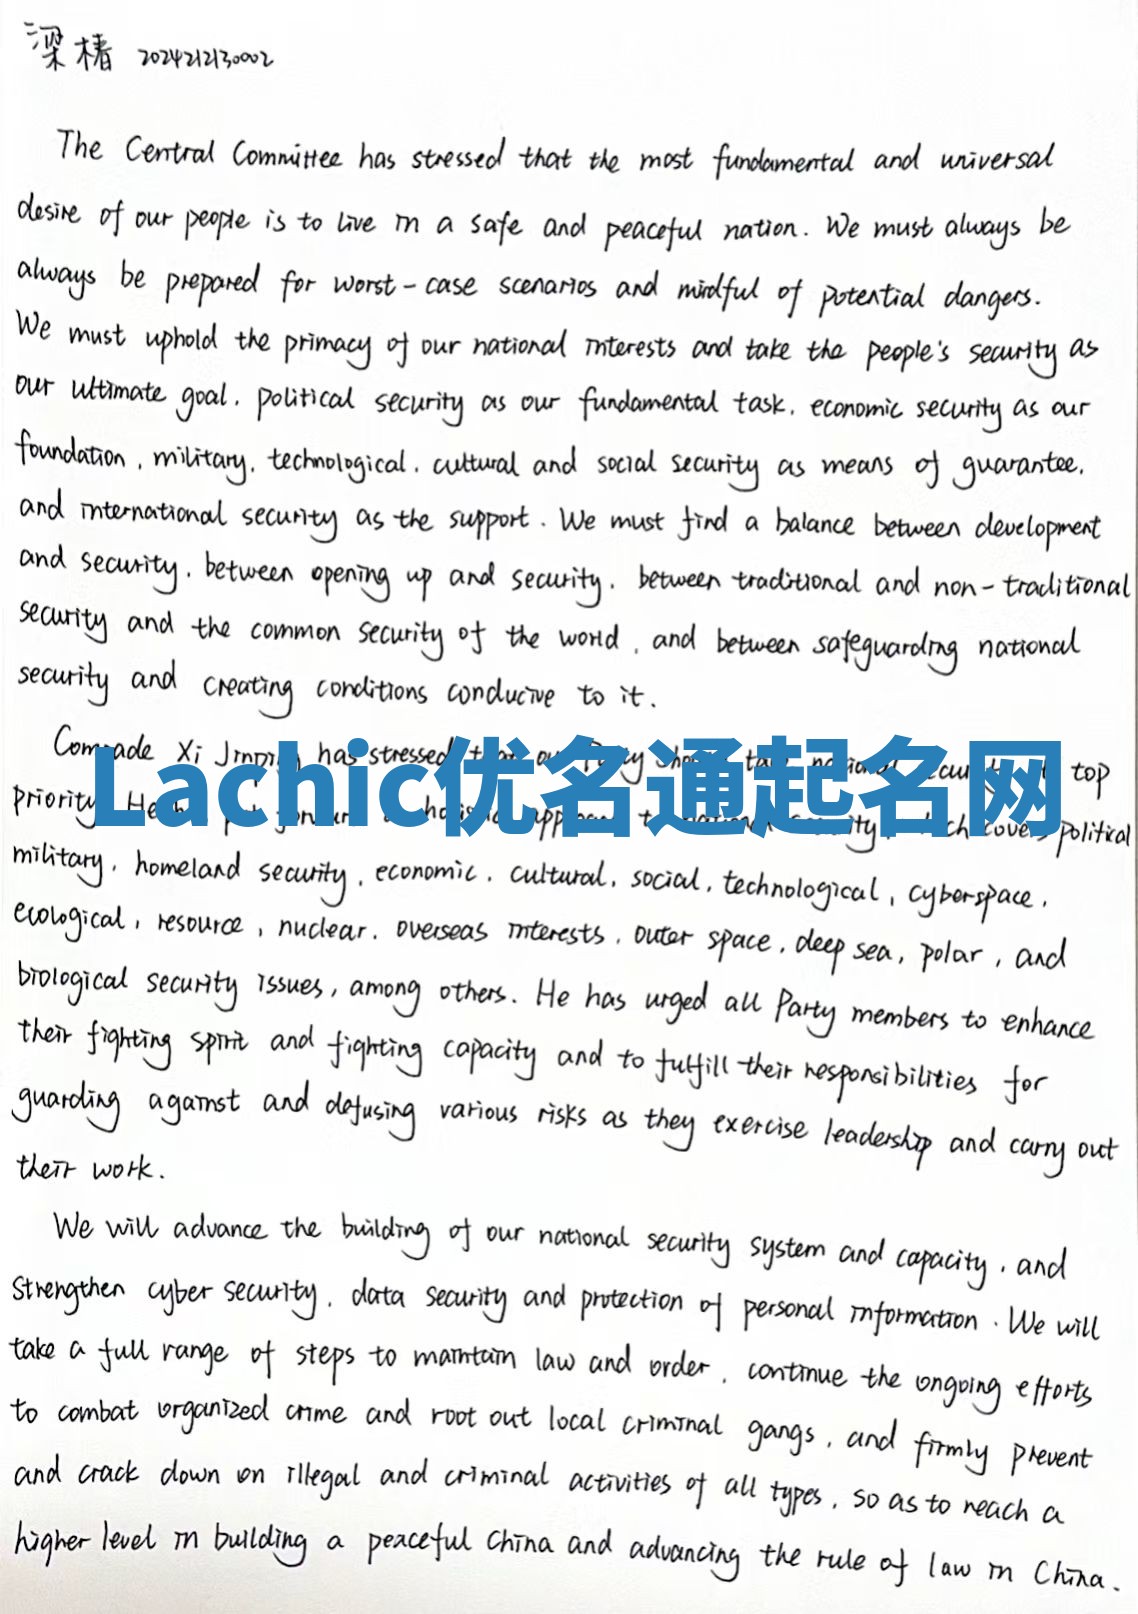 梁椿 2024212130002
The Central Committee has stressed that the most fundamental and universal
desire of our people is to live in a safe and peaceful nation. We must always be
always be prepared for worst-case scenarios and mindful of potential dangers.
We must uphold the primacy of our national interests and take the people's security as
our ultimate goal, political security as our fundamental task, economic security as our
foundation, military, technological, cultural and social security as means of guarantee,
and international security as the support. We must find a balance between development
and security, between opening up and security, between traditional and non-traditional
security and the common security of the world, and between safeguarding national
security and creating conditions conducive to it.
Comrade Xi Jinping has stressed that our Party should top
Lachic优名通起名网
priority. political
military, homeland security, economic, cultural, social, technological, cyberspace,
ecological, resource, nuclear, overseas interests, outer space, deep sea, polar, and
biological security issues, among others. He has urged all Party members to enhance
their fighting spirit and fighting capacity and to fulfill their responsibilities for
guarding against and defusing various risks as they exercise leadership and carry out
their work.
We will advance the building of our national security system and capacity, and
strengthen cyber security, data security and protection of personal information. We will
take a full range of steps to maintain law and order, continue the ongoing efforts
to combat organized crime and root out local criminal gangs, and firmly prevent
and crack down on illegal and criminal activities of all types, so as to reach a
higher level in building a peaceful China and advancing the rule of law in China.